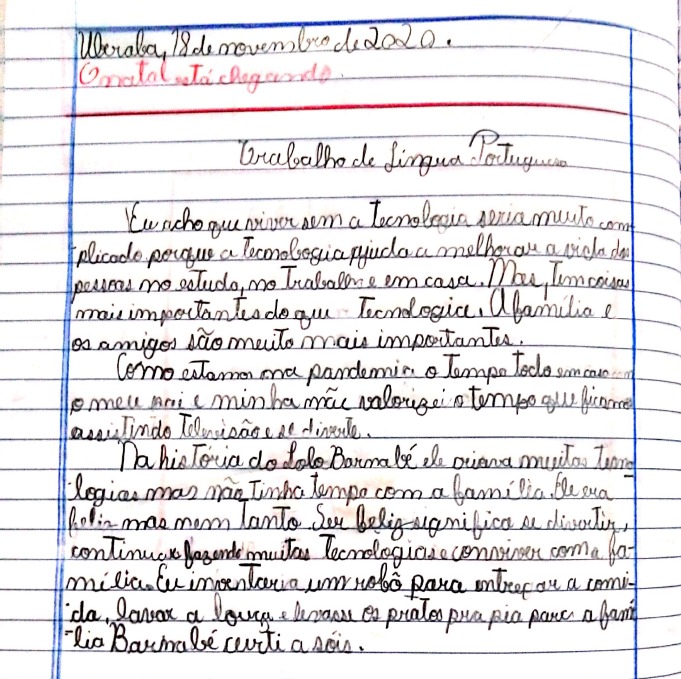 Uberaba, 18 de novembro de 2020.
O natal está chegando.
Trabalho de Língua Portuguesa
Eu acho que viver sem a tecnologia seria muito com-
plicado porque a tecnologia ajuda a melhorar a vida das
pessoas no estudo, no trabalho e em casa. Mas, tem coisas
mais importantes do que tecnologia. A família e
os amigos são muito mais importantes.
Como estamos na pandemia o tempo todo em casa com
o meu pai e minha mãe valorizei o tempo que ficamos
assistindo televisão e se diverte.
Na história do Lolo Barnabé ele criava muitas tecno-
logias mas não tinha tempo com a família. Ele era
feliz mas nem tanto. Ser feliz significa se divertir,
continuar fazendo muitas tecnologias e conviver com a fa-
mília. Eu inventaria um robô para entregar a comi-
da, lavar a louça e levasse os pratos pra pia para a famí
-lia Barnabé curti a sóis.